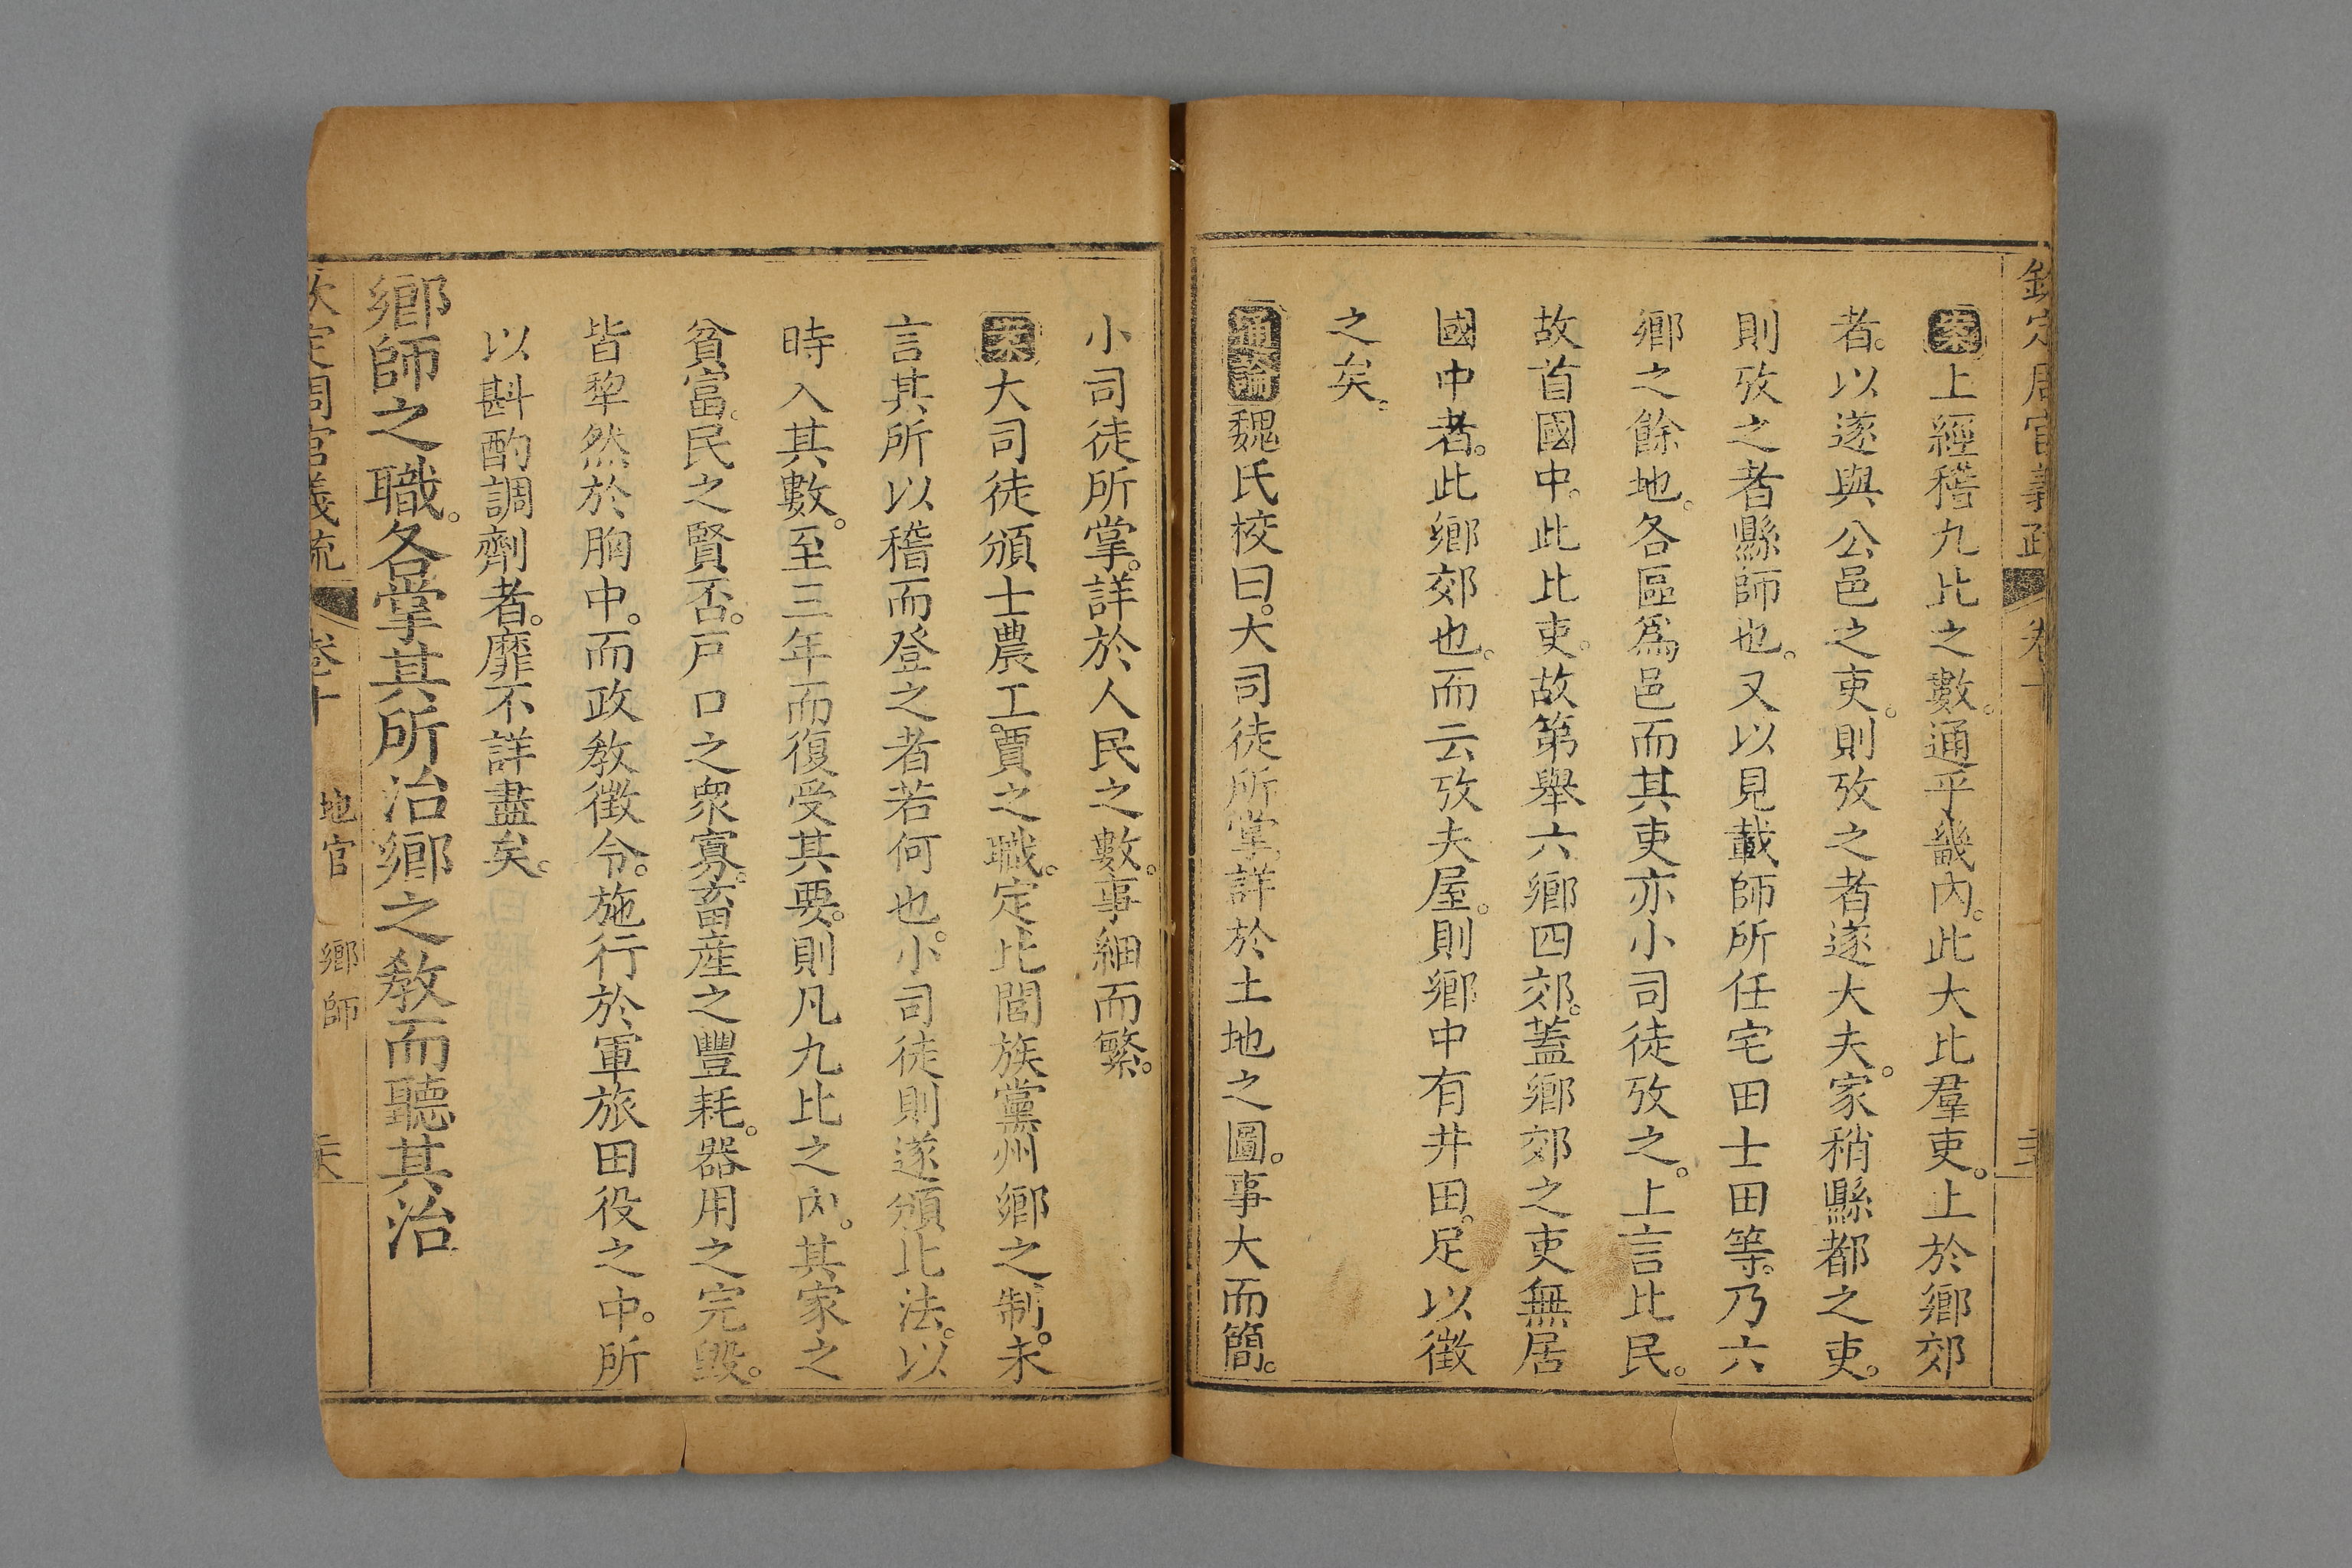 欽定周官義疏 卷十
案上經稽九比之數。通乎畿內。此大比羣吏。止於鄉郊
者。以遂與公邑之吏。則攷之者遂大夫。家稍縣都之吏。
則攷之者縣師也。又以見載師所任宅田士田等。乃六
鄉之餘地。各區爲邑而其吏亦小司徒攷之。上言比民。
故首國中。此比吏。故第舉六鄉四郊。蓋鄉郊之吏無居
國中者。此鄉郊也。而云攷夫屋。則鄉中有井田。足以徵
之矣。
通論魏氏校曰。大司徒所掌。詳於土地之圖。事大而簡。
小司徒所掌。詳於人民之數。事細而繁。
案大司徒頒士農工賈之職。定比閭族黨州鄉之制。未
言其所以稽而登之者若何也。小司徒則遂頒比法。以
時入其數。至三年而復受其要。則凡九比之內。其家之
貧富。民之賢否。戸口之衆寡。畜產之豐耗。器用之完毀。
皆犂然於胸中。而政敎徵令。施行於軍旅田役之中。所
以斟酌調劑者。靡不詳盡矣。
鄉師之職。各掌其所治鄉之敎而聽其治
欽定周官義疏 卷十 地官 鄉師